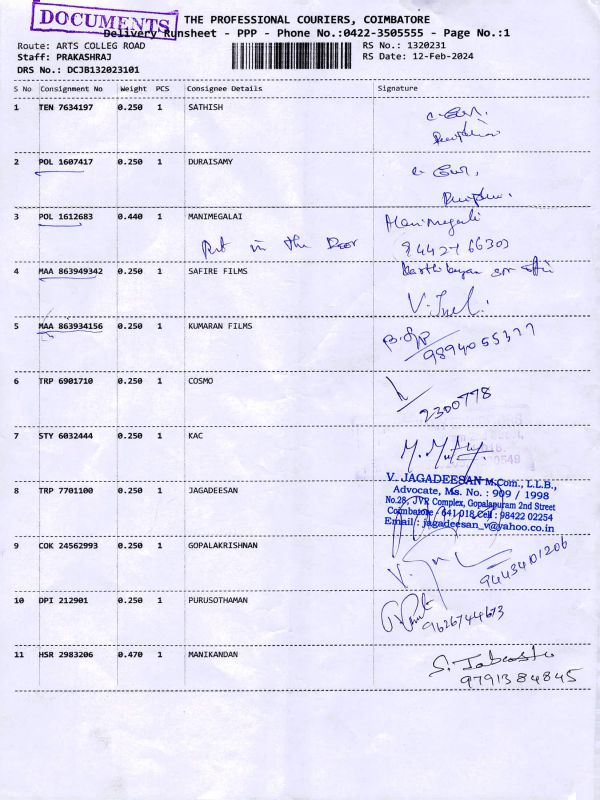 DOCUMENTS
THE PROFESSIONAL COURIERS, COIMBATORE
Delivery Runsheet - PPP - Phone No.:0422-3505555 - Page No.:1
Route: ARTS COLLEG ROAD
RS No.: 1320231
Staff: PRAKASHRAJ
RS Date: 12-Feb-2024
DRS No.: DCJB132023101
S No Consignment No Weight PCS Consignee Details Signature
1 TEN 7634197 0.250 1 SATHISH
2 POL 1607417 0.250 1 DURAISAMY
3 POL 1612683 0.440 1 MANIMEGALAI Manimegali
Put in the Door
4 MAA 863949342 0.250 1 SAFIRE FILMS
5 MAA 863934156 0.250 1 KUMARAN FILMS
6 TRP 6901710 0.250 1 COSMO
2300778
7 STY 6032444 0.250 1 KAC
V. JAGADEESAN M.Com., L.L.B.,
8 TRP 7701100 0.250 1 JAGADEESAN
Advocate, Ms. No. : 909 / 1998
No.28, JVR Complex, Gopalapuram 2nd Street
Coimbatore - 641 018. Cell : 98422 02254
Email : jagadeesan_v@yahoo.co.in
9 COK 24562993 0.250 1 GOPALAKRISHNAN
9443401206
10 DPI 212901 0.250 1 PURUSOTHAMAN
9626744673
11 HSR 2983206 0.470 1 MANIKANDAN
9791384845